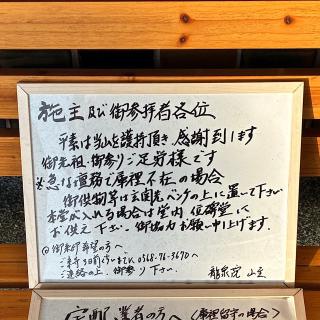 施主及び御参拝者各位
平素は当山を護持頂き感謝致します
御先祖・御参りご足労様です
※急な寺務で庫裡不在の場合
御供物等は玄関先ベンチの上に置いて下さい
本堂が入れる場合は堂内位牌堂に
お供え下さい。御協力お願い申し上げます.
@御朱印希望の方へ
0568-76-3670へ
ご連絡の上、御参り下さい.
龍泉院 山主
宅配業者の方へ(庫裡留守の場合)